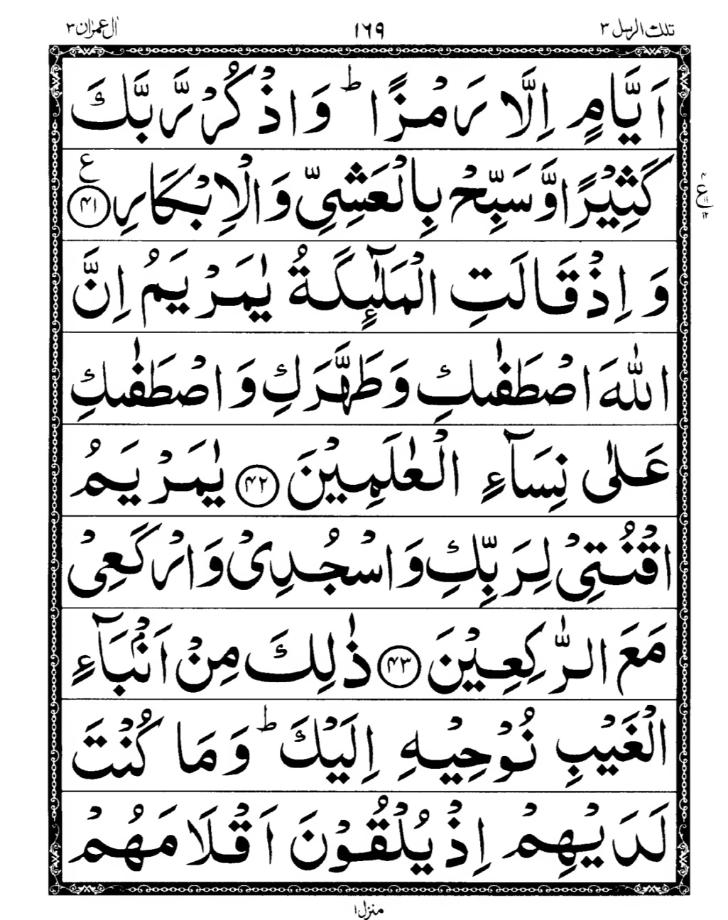 تلك الرسل ٣
١٦٩
اٰل عمرٰن ٣
اَيَّامٍ اِلَّا رَمْزًا ؕ وَاذْكُرْ رَّبَّكَ
كَثِيْرًا وَّسَبِّحْ بِالْعَشِيِّ وَالْاِبْكَارِ ﴿٤١﴾ ع
٤
ع
١١
١٢
وَ اِذْ قَالَتِ الْمَلٰٓئِكَةُ يٰمَرْيَمُ اِنَّ
اللّٰهَ اصْطَفٰىكِ وَطَهَّرَكِ وَاصْطَفٰىكِ
عَلٰى نِسَآءِ الْعٰلَمِيْنَ ﴿٤٢﴾ يٰمَرْيَمُ
اقْنُتِيْ لِرَبِّكِ وَاسْجُدِيْ وَارْكَعِيْ
مَعَ الرّٰكِعِيْنَ ﴿٤٣﴾ ذٰلِكَ مِنْ اَنْۢبَآءِ
الْغَيْبِ نُوْحِيْهِ اِلَيْكَ ؕ وَمَا كُنْتَ
لَدَيْهِمْ اِذْ يُلْقُوْنَ اَقْلَامَهُمْ
منزل ١